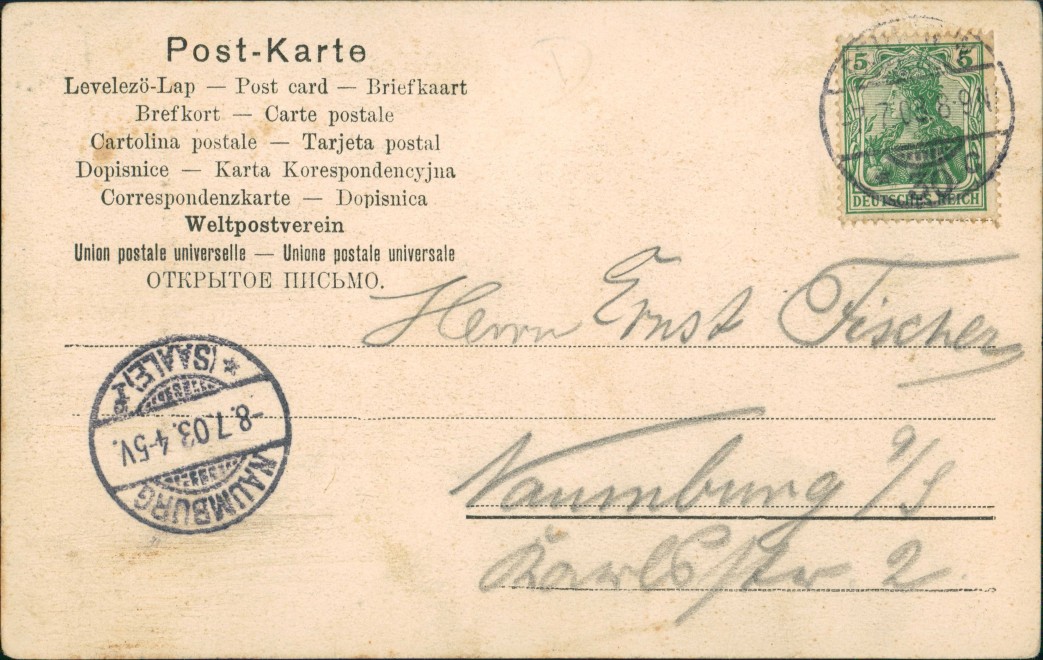 Post-Karte
Levelezö-Lap — Post card — Briefkaart
Brefkort — Carte postale
Cartolina postale — Tarjeta postal
Dopisnice — Karta Korespondencyjna
Correspondenzkarte — Dopisnica
Weltpostverein
Union postale universelle — Unione postale universale
ОТКРЫТОЕ ПИСЬМО.
5 5
7.03. 8-9N
DEUTSCHES REICH
Herrn Ernst Fischer
NAUMBURG
-8.7.03. 4-5V.
* (SAALE)
Naumburg a/S
Karlsstr. 2